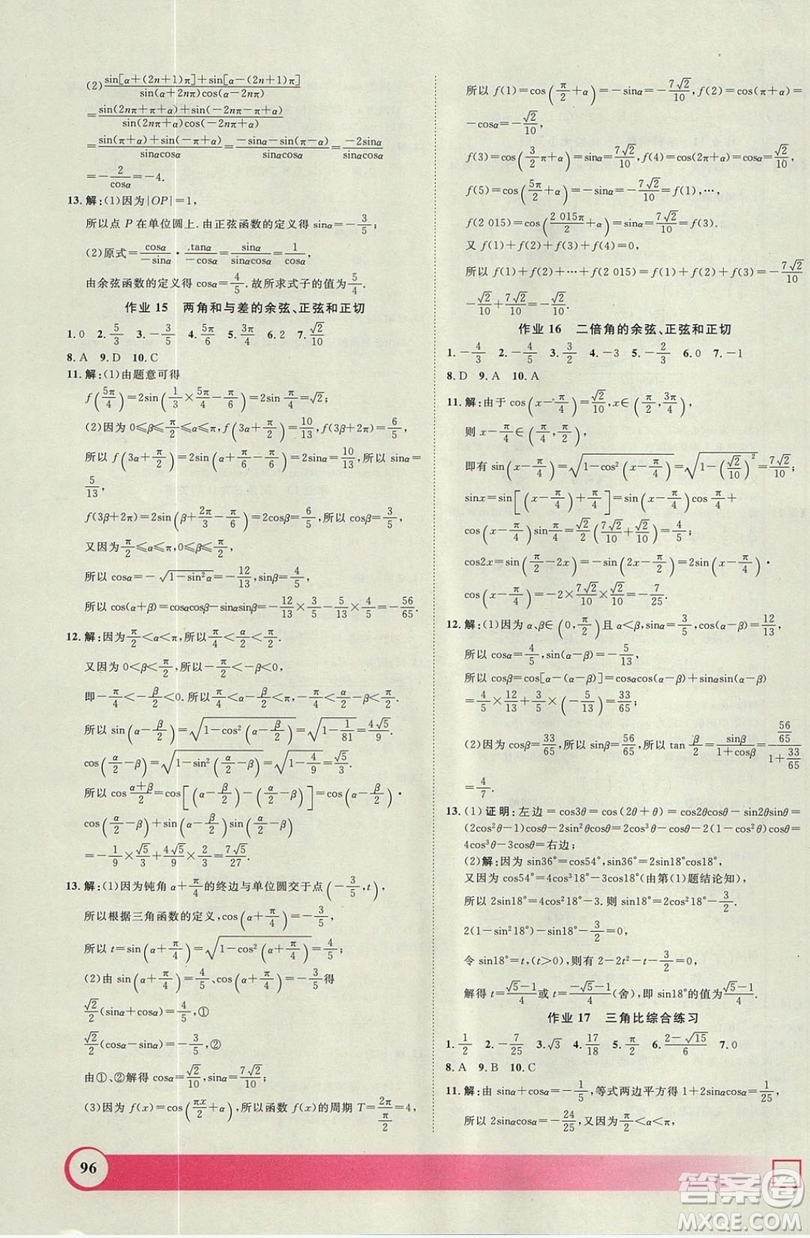 (2) \frac{sin[α+(2n+1)π]+sin[α-(2n+1)π]}{sin(α+2nπ)cos(α-2nπ)}
=\frac{sin(2nπ+π+α)+sin(-2nπ-π+α)}{sin(2nπ+α)cos(-2nπ+α)}
=\frac{sin(π+α)+sin(-π+α)}{sinαcosα}=\frac{-sinα-sin(π-α)}{sinαcosα}=\frac{-2sinα}{sinαcosα}
=-\frac{2}{cosα}=-4.
13. 解:(1)因为|OP|=1,
所以点 P 在单位圆上.由正弦函数的定义得 sinα=-\frac{3}{5};
(2)原式=\frac{cosα}{-sinα}·\frac{tanα}{-cosα}=\frac{sinα}{sinαcosα}=\frac{1}{cosα}.
由余弦函数的定义得 cosα=\frac{4}{5}.故所求式子的值为\frac{5}{4}.
作业 15 两角和与差的余弦、正弦和正切
1. 0 2. \frac{5}{3} 3. -\frac{3}{4} 4. \frac{5π}{6} 5. \frac{3π}{4} 6. 2 7. \frac{\sqrt{2}}{10}
8. A 9. D 10. C
11. 解:(1)由题意可得
f(\frac{5π}{4})=2sin(\frac{1}{3}×\frac{5π}{4}-\frac{π}{6})=2sin\frac{π}{4}=\sqrt{2};
(2)因为 0≤β≤\frac{π}{2}≤α≤π,f(3α+\frac{π}{2})=\frac{10}{13},f(3β+2π)=\frac{6}{5},
所以 f(3α+\frac{π}{2})=2sin(α+\frac{π}{6}-\frac{π}{6})=2sinα=\frac{10}{13},所以 sinα=
\frac{5}{13},
f(3β+2π)=2sin(β+\frac{2π}{3}-\frac{π}{6})=2cosβ=\frac{6}{5},所以 cosβ=\frac{3}{5}.
又因为\frac{π}{2}≤α≤π,0≤β≤\frac{π}{2},
所以 cosα=-\sqrt{1-sin²α}=-\frac{12}{13},sinβ=\frac{4}{5}.
所以 cos(α+β)=cosαcosβ-sinαsinβ=-\frac{12}{13}×\frac{3}{5}-\frac{5}{13}×\frac{4}{5}=-\frac{56}{65}.
12. 解:因为\frac{π}{2}<α<π,所以\frac{π}{4}<\frac{α}{2}<\frac{π}{2}.
又因为 0<β<\frac{π}{2},所以-\frac{π}{2}<-β<0,
即-\frac{π}{4}<-\frac{β}{2}<0.所以-\frac{π}{4}<\frac{α}{2}-β<\frac{π}{2},\frac{π}{4}<α-\frac{β}{2}<π.
所以 sin(α-\frac{β}{2})=\sqrt{1-cos²(α-\frac{β}{2})}=\sqrt{1-\frac{1}{81}}=\frac{4\sqrt{5}}{9}.
cos(\frac{α}{2}-β)=\sqrt{1-sin²(\frac{α}{2}-β)}=\sqrt{1-\frac{4}{9}}=\frac{\sqrt{5}}{3}.
所以 cos\frac{α+β}{2}=cos[(α-\frac{β}{2})-(\frac{α}{2}-β)]
=cos(α-\frac{β}{2})cos(\frac{α}{2}-β)+sin(α-\frac{β}{2})sin(\frac{α}{2}-β)
=-\frac{1}{9}×\frac{\sqrt{5}}{3}+\frac{4\sqrt{5}}{9}×\frac{2}{3}=\frac{7\sqrt{5}}{27}.
13. 解:(1)因为钝角 α+\frac{π}{4}的终边与单位圆交于点(-\frac{3}{5},t),
所以根据三角函数的定义,cos(α+\frac{π}{4})=-\frac{3}{5},
所以 t=sin(α+\frac{π}{4})=\sqrt{1-cos²(α+\frac{π}{4})}=\frac{4}{5};
(2)由 sin(α+\frac{π}{4})=\frac{4}{5},cos(α+\frac{π}{4})=-\frac{3}{5}得
\frac{\sqrt{2}}{2}(sinα+cosα)=\frac{4}{5},①
\frac{\sqrt{2}}{2}(cosα-sinα)=-\frac{3}{5},②
由①、②解得 cosα=\frac{\sqrt{2}}{10},sinα=\frac{7\sqrt{2}}{10};
(3)因为 f(x)=cos(\frac{πx}{2}+α),所以函数 f(x)的周期 T=\frac{2π}{\frac{π}{2}}=4,
96
所以 f(1)=cos(\frac{π}{2}+α)=-sinα=-\frac{7\sqrt{2}}{10},f(2)=cos(π+α)=
-cosα=-\frac{\sqrt{2}}{10},
f(3)=cos(\frac{3π}{2}+α)=sinα=\frac{7\sqrt{2}}{10},f(4)=cosα=\frac{\sqrt{2}}{10},
f(5)=cos(\frac{5π}{2}+α)=-\frac{7\sqrt{2}}{10}=f(1),…,
f(2 015)=cos(\frac{2 015π}{2}+α)=sinα=\frac{7\sqrt{2}}{10}=f(3).
又 f(1)+f(2)+f(3)+f(4)=0,
所以 f(1)+f(2)+…+f(2 015)=f(1)+f(2)+f(3)=-\frac{7\sqrt{2}}{10}
-\frac{\sqrt{2}}{10}+\frac{7\sqrt{2}}{10}=-\frac{\sqrt{2}}{10}.
作业 16 二倍角的余弦、正弦和正切
1. -\frac{4}{3} 2. -\frac{4}{5} 3. -\frac{1}{2} 4. -3 5. -\frac{4}{5} 6. 0 7. -1
8. D 9. A 10. A
11. 解:由于 cos(x-\frac{π}{4})=\frac{\sqrt{2}}{10},x∈(\frac{π}{2},\frac{3π}{4}),
则 x-\frac{π}{4}∈(\frac{π}{4},\frac{π}{2}),
即有 sin(x-\frac{π}{4})=\sqrt{1-cos²(x-\frac{π}{4})}=\sqrt{1-(\frac{\sqrt{2}}{10})²}=\frac{7\sqrt{2}}{10},
sinx=sin[(x-\frac{π}{4})+\frac{π}{4}]=sin(x-\frac{π}{4})cos\frac{π}{4}+
cos(x-\frac{π}{4})sin\frac{π}{4}=\frac{\sqrt{2}}{2}(\frac{7\sqrt{2}}{10}+\frac{\sqrt{2}}{10})=\frac{4}{5};
cos2x=sin(\frac{π}{2}-2x)=-2sin(x-\frac{π}{4})·
cos(x-\frac{π}{4})=-2×\frac{7\sqrt{2}}{10}×\frac{\sqrt{2}}{10}=-\frac{7}{25}.
12. 解:(1)因为 α、β∈(0,\frac{π}{2})且 α<β,sinα=\frac{3}{5},cos(α-β)=\frac{12}{13},
所以 cosα=\frac{4}{5},sin(α-β)=-\frac{5}{13},
所以 cosβ=cos[α-(α-β)]=cosαcos(α-β)+sinαsin(α-β)
=\frac{4}{5}×\frac{12}{13}+\frac{3}{5}×(-\frac{5}{13})=\frac{33}{65};
(2)因为 cosβ=\frac{33}{65},所以 sinβ=\frac{56}{65},所以 tan\frac{β}{2}=\frac{sinβ}{1+cosβ}=\frac{\frac{56}{65}}{1+\frac{33}{65}}
=\frac{4}{7}.
13. (1) 证明:左边=cos3θ=cos(2θ+θ)=cos2θcosθ-sin2θsinθ=
(2cos²θ-1)cosθ-2sin²θcosθ=(2cos²θ-1)cosθ-2(1-cos²θ)cosθ=
4cos³θ-3cosθ=右边;
(2)解:因为 sin36°=cos54°,sin36°=2sin18°cos18°,
又因为 cos54°=4cos³18°-3cos18°(由第(1)题结论知),
所以 2sin18°=4cos²18°-3.则 sin18°=2cos²18°-\frac{3}{2},
2(1-sin²18°)-sin18°-\frac{3}{2}=0.
令 sin18°=t,(t>0),则 2-2t²-t-\frac{3}{2}=0,
解得 t=\frac{\sqrt{5}-1}{4}或 t=\frac{-\sqrt{5}-1}{4}(舍),所以 sin18°的值为\frac{\sqrt{5}-1}{4}.
作业 17 三角比综合练习
1. \frac{1}{2} 2. -\frac{7}{25} 3. \sqrt{3} 4. \frac{17}{18} 5. \frac{π}{3} 6. \frac{2-\sqrt{15}}{6} 7. 0
8. A 9. B 10. C
11. 解:由 sinα+cosα=-\frac{1}{5},等式两边平方得 1+2sinαcosα=\frac{1}{25},
所以 2sinαcosα=-\frac{24}{25},又因为\frac{π}{2}<α<π,
答案圈
MXQE.COM